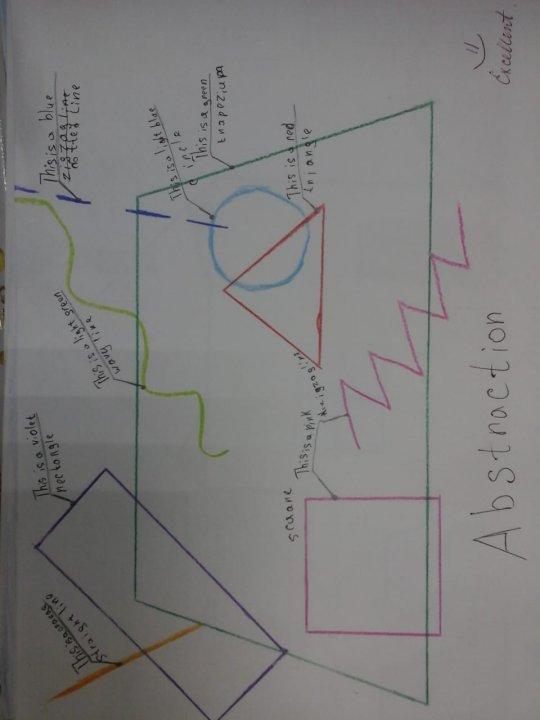 This is a orange
straight line
This is a violet
rectangle
This is a light green
wavy line
This is a blue
zigzag line
dotted line
This is a light blue
circle
This is a green
This is a red
triangle
square
This is a pink
zigzag line
Abstraction
Excellent